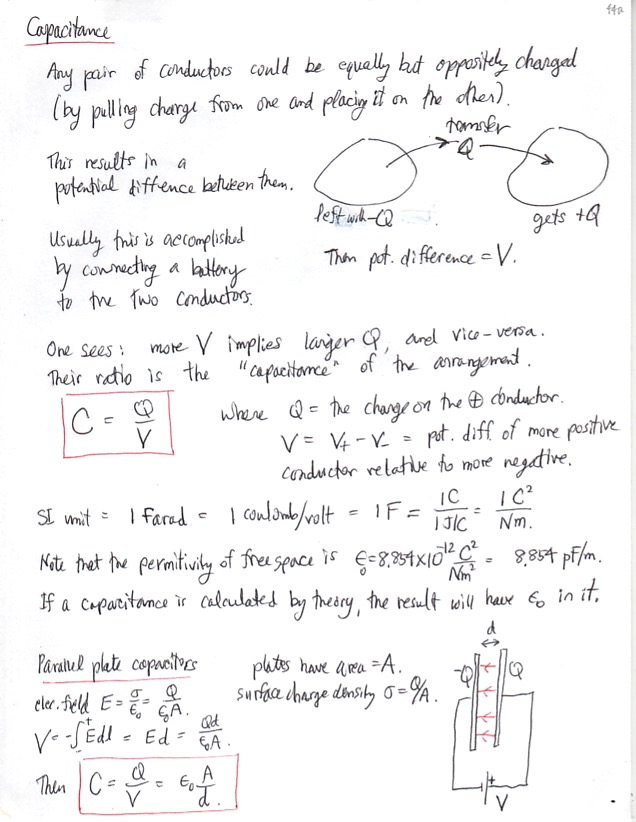 44a
Capacitance
Any pair of conductors could be equally but oppositely charged
(by pulling charge from one and placing it on the other).
transfer
Q
This results in a
potential diffence between them.
left with -Q
gets +Q
Usually this is accomplished
by connecting a battery
to the two conductors.
Then pot. difference = V.
One sees: more V implies larger Q, and vice-versa.
Their ratio is the "capacitance" of the arrangement.
C = Q/V
where Q = the charge on the ⊕ conductor.
V = V+ - V- = pot. diff. of more positive
conductor relative to more negative.
SI unit = 1 farad = 1 coulomb/volt = 1F = 1C/1J/C = 1C²/Nm.
Note that the permitivity of free space is ε₀=8.854×10⁻¹² C²/Nm² = 8.854 pF/m.
If a capacitance is calculated by theory, the result will have ε₀ in it.
Parallel plate capacitors
plates have area = A.
surface charge density σ = Q/A.
elec. field E = σ/ε₀ = Q/ε₀A.
V = -∫₋⁺ Edl = Ed = Qd/ε₀A.
Then C = Q/V = ε₀ A/d.
d
-Q
Q
+
V